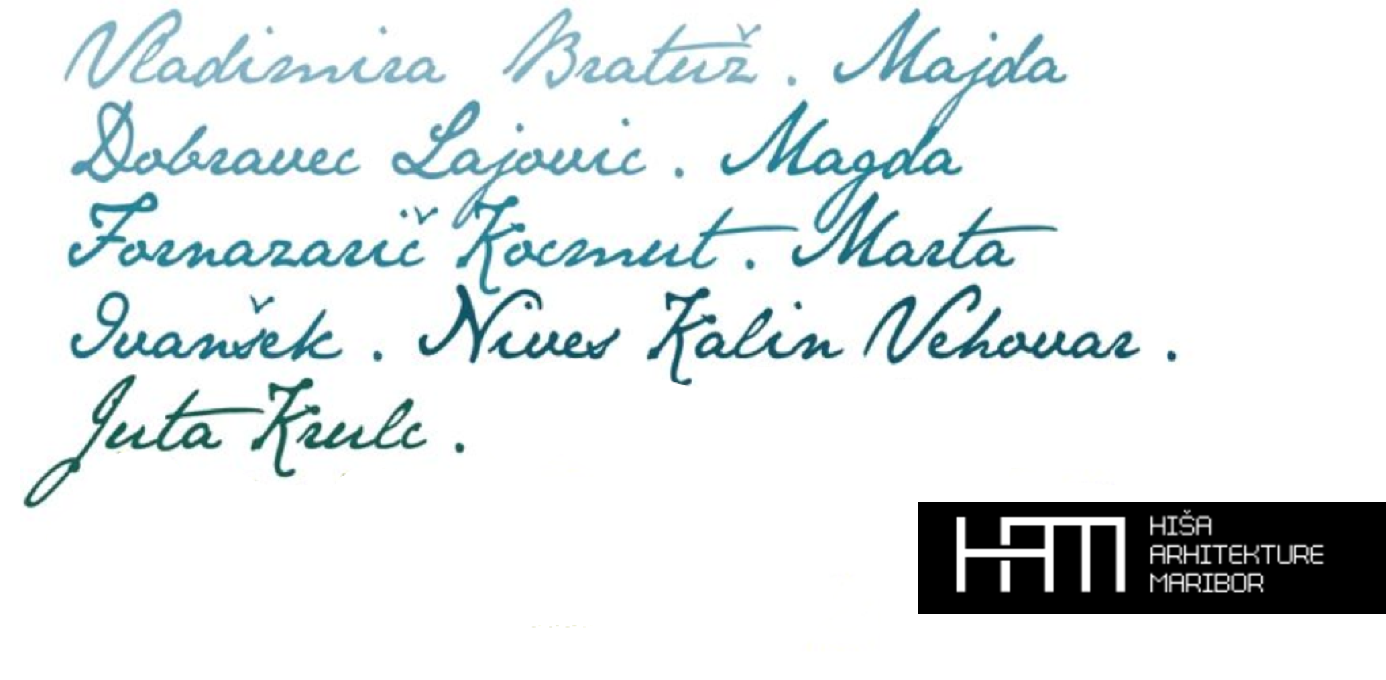 Vladimira Bratuž . Majda
Dobravec Lajovic . Magda
Fornazarič Kocmut . Marta
Ivanšek . Nives Kalin Vehovar .
Juta Krulc .
HAM
HIŠA
ARHITEKTURE
MARIBOR